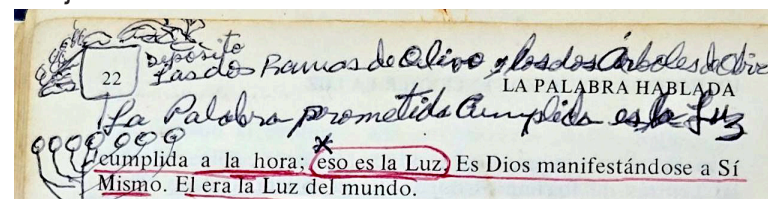 Depósito
22 Las dos Ramas de Olivo y los dos Árboles de Olivo
LA PALABRA HABLADA
La Palabra prometida Cumplida es la Luz
cumplida a la hora; eso es la Luz. Es Dios manifestándose a Sí
Mismo. El era la Luz del mundo.